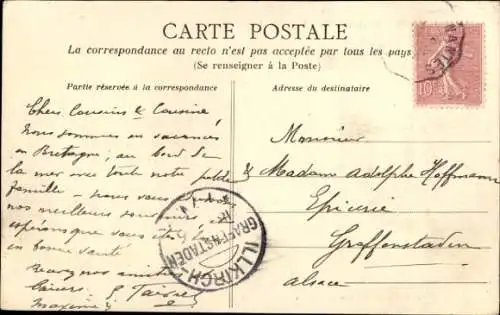 CARTE POSTALE
La correspondance au recto n'est pas acceptée par tous les pays
(Se renseigner à la Poste)
Partie réservée à la correspondance
Adresse du destinataire
NANTES
10
Chers Cousins & Cousine,
Nous sommes en vacances
en Bretagne, au bord de
la mer avec toute notre petite
famille - nous vous
nos meilleurs souvenirs et
espérons que vous
en bonne santé
Recevez nos amitiés
Maxime
Monsieur
& Madame Adolphe Hoffmann
Epicerie
Graffenstaden
Alsace
ILLKIRCH-
GRAFENSTADEN